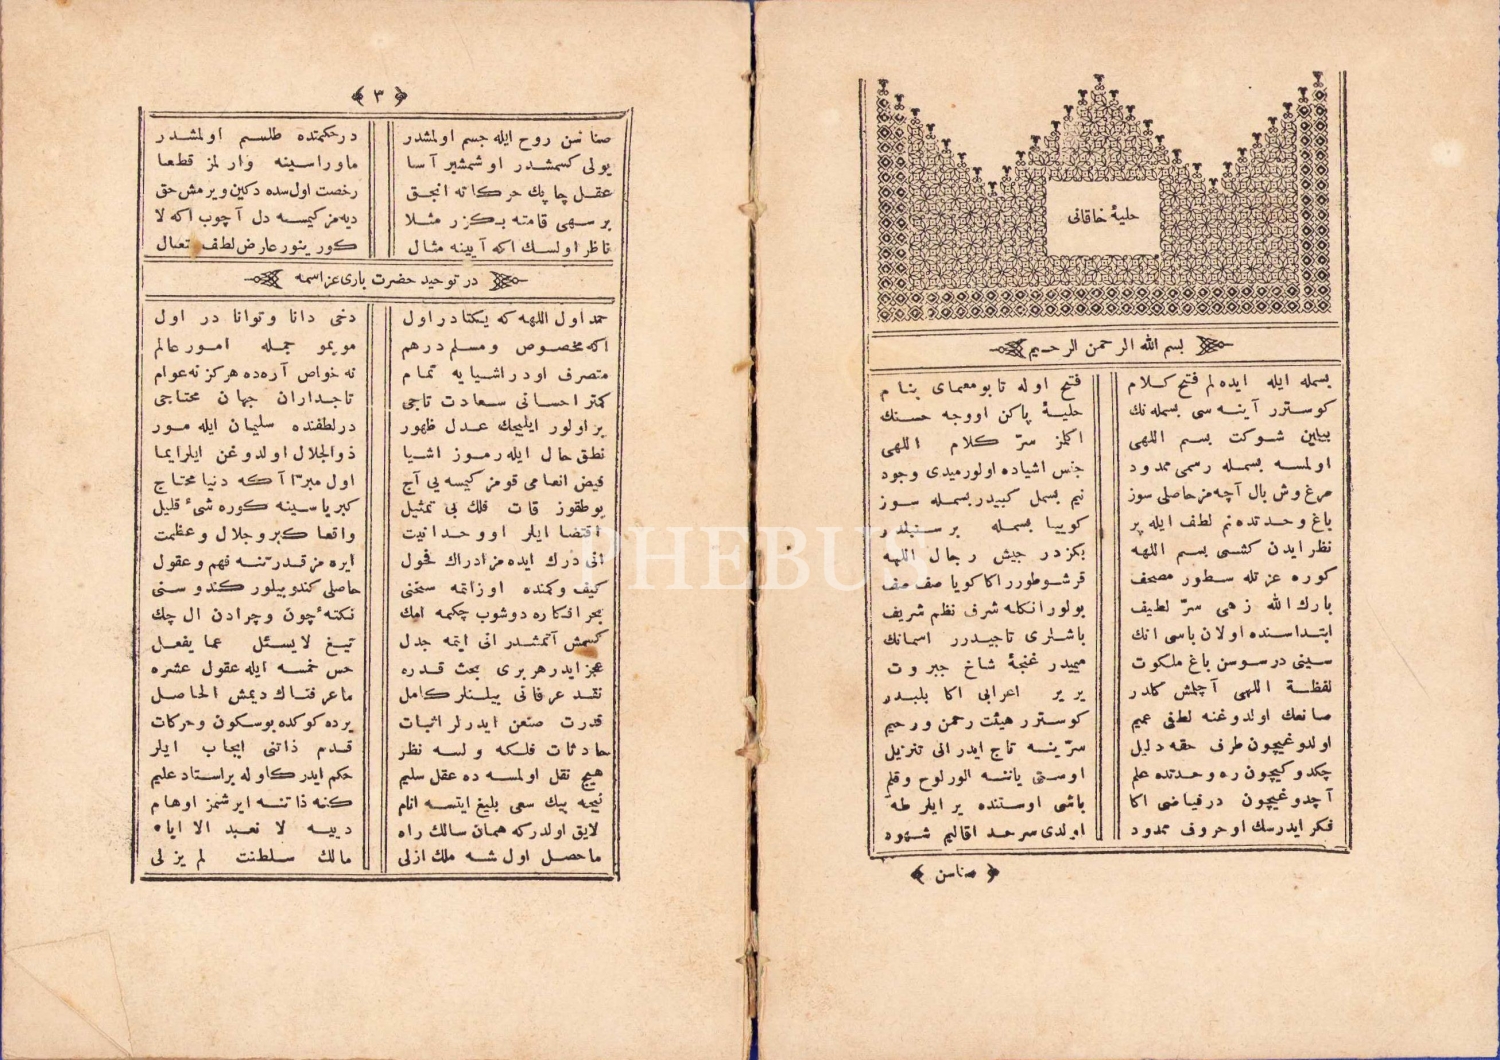 حلیۀ خاقانی
بسم الله الرحمن الرحیم
بسمله ایله ایده لم فتح کلام فتح اوله تا بو معمای بنام
کوسترر آینه سی بسمله نك حلیۀ پاکن اووجه حسنك
بیلین شوکت بسم اللهی اکلز سرّ کلام اللهی
اولمسه بسمله رسمی ممدود جنس اشیاده اولورمیدی وجود
مرغ وش بال آچه مز حاصلی سوز نیم بسمل کبیدر بسمله سوز
باغ وحدتده نم لطف ایله پر کوییا بسمله بر سنبلدر
نظر ایدن کشی بسم اللهه بکزدر جیش رجال اللهه
کوره عزتله سطور مصحف قرشوطورر اکا کویا صف صف
بارك الله زهی سرّ لطیف بولور انکله شرف نظم شریف
ابتداسنده اولان باسی انك باشلری تاجیدرر اسمانك
سینی در سوسن باغ ملکوت میمیدر غنچۀ شاخ جبروت
لفظة اللهی آچلمش کلدر یر یر اعرابی اکا بلبلدر
صانعك اولدوغنه لطفی عمیم کوسترر هیئت رحمن ورحیم
اولدوغیچون طرف حقه دلیل سرّینه تاج ایدر انی تنزیل
چکدوکیچون ره وحدتده علم اوستی یاننه الور لوح وقلم
آچدوغیچون در فیاضی اکا باشی اوستنده یر ایلر طه
فکر ایدرسك او حروف ممدود اولدی سرحد اقالیم شهود
﴿ صناسن ﴾
﴿ ٣ ﴾
صناسن روح ایله جسم اولمشدر در حکمتده طلسم اولمشدر
یولی کسمشدر او شمشیر آسا ماوراسینه وارلمز قطعا
عقل چاپك حرکاته انجق رخصت اول سده دکین ویرمش حق
بر سهی قامته بکزر مثلا دیه مز کیمسه دل آچوب اکه لا
ناظر اولسك اکه آیینه مثال کورینور عارض لطف تعال
در توحید حضرت باری عز اسمه
حمد اول اللهه که یکتادر اول دخی دانا وتوانا در اول
اکه مخصوص ومسلم درهم مویمو جمله امور عالم
متصرف اودر اشیایه تمام نه خواص آره ده هرکز نه عوام
کمتر احسانی سعادت تاجی تاجداران جهان محتاجی
بر اولور ایلیجك عدل ظهور در لطفنده سلیمان ایله مور
نطق حال ایله رموز اشیا ذوالجلال اولدوغن ایلر ایما
فیض انعامی قومز کیمسه یی آج اول مبرّا آکه دنیا محتاج
بو طقوز قات فلك بی تمثیل کبریاسینه کوره شیٔ قلیل
اقتضا ایلر او وحدانیت واقعا کبر وجلال وعظمت
انی درك ایده مز ادراك فحول ایره مز قدرتنه فهم وعقول
کیف وکمنده اوزاتمه سخنی حاصلی کندو بیلور کندوسنی
بحر افکاره دوشوب چکمه امك نکتۀ چون وچرادن ال چك
کسمش آتمشدر انی ایتمه جدل تیغ لا یسئل عما یفعل
عجز ایدر هر بری بحث قدره حس خمسه ایله عقول عشره
نقد عرفانی بیلنلر کامل ماعرفناك دیمش الحاصل
قدرت صنعن ایدرلر اثبات یرده کوکده بو سکون وحرکات
حادثات فلکه ولسه نظر قدم ذاتنی ایجاب ایلر
هیچ نقل اولمسه ده عقل سلیم حکم ایدر کاوله بر استاد علیم
نیجه بیك سعی بلیغ ایتسه انام کنه ذاتنه ایرشمز اوهام
لایق اولدر که همان سالك راه دییه لا نعبد الا ایاه
ماحصل اول شه ملك ازلی مالك سلطنت لم یزلی
PHEBUS